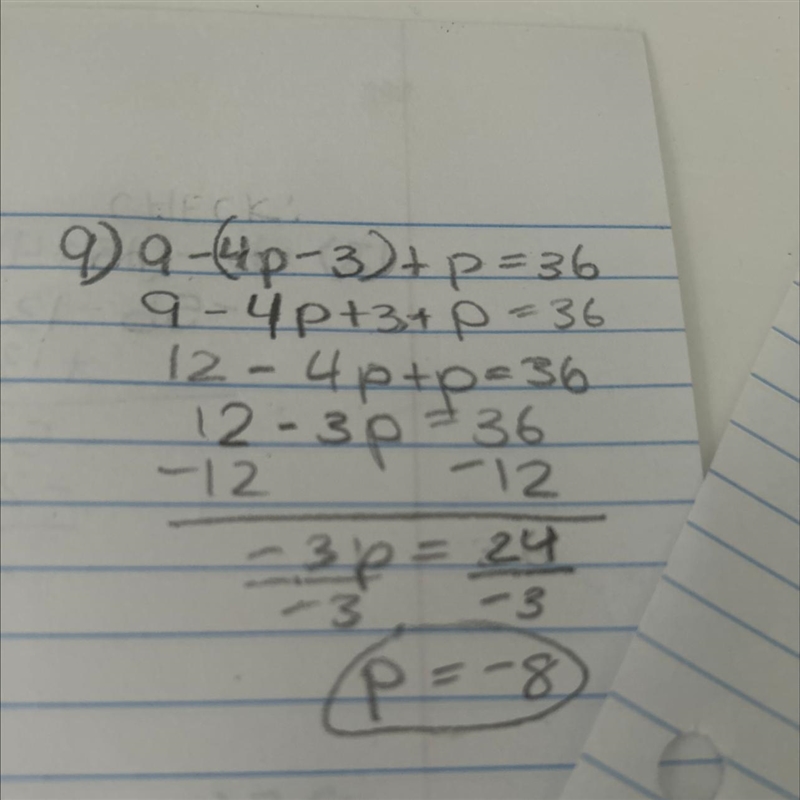 9) 9-(4p-3)+p=36
9-4p+3+p=36
12-4p+p=36
12-3p=36
-12 -12
-3p = 24
-3 -3
p=-8